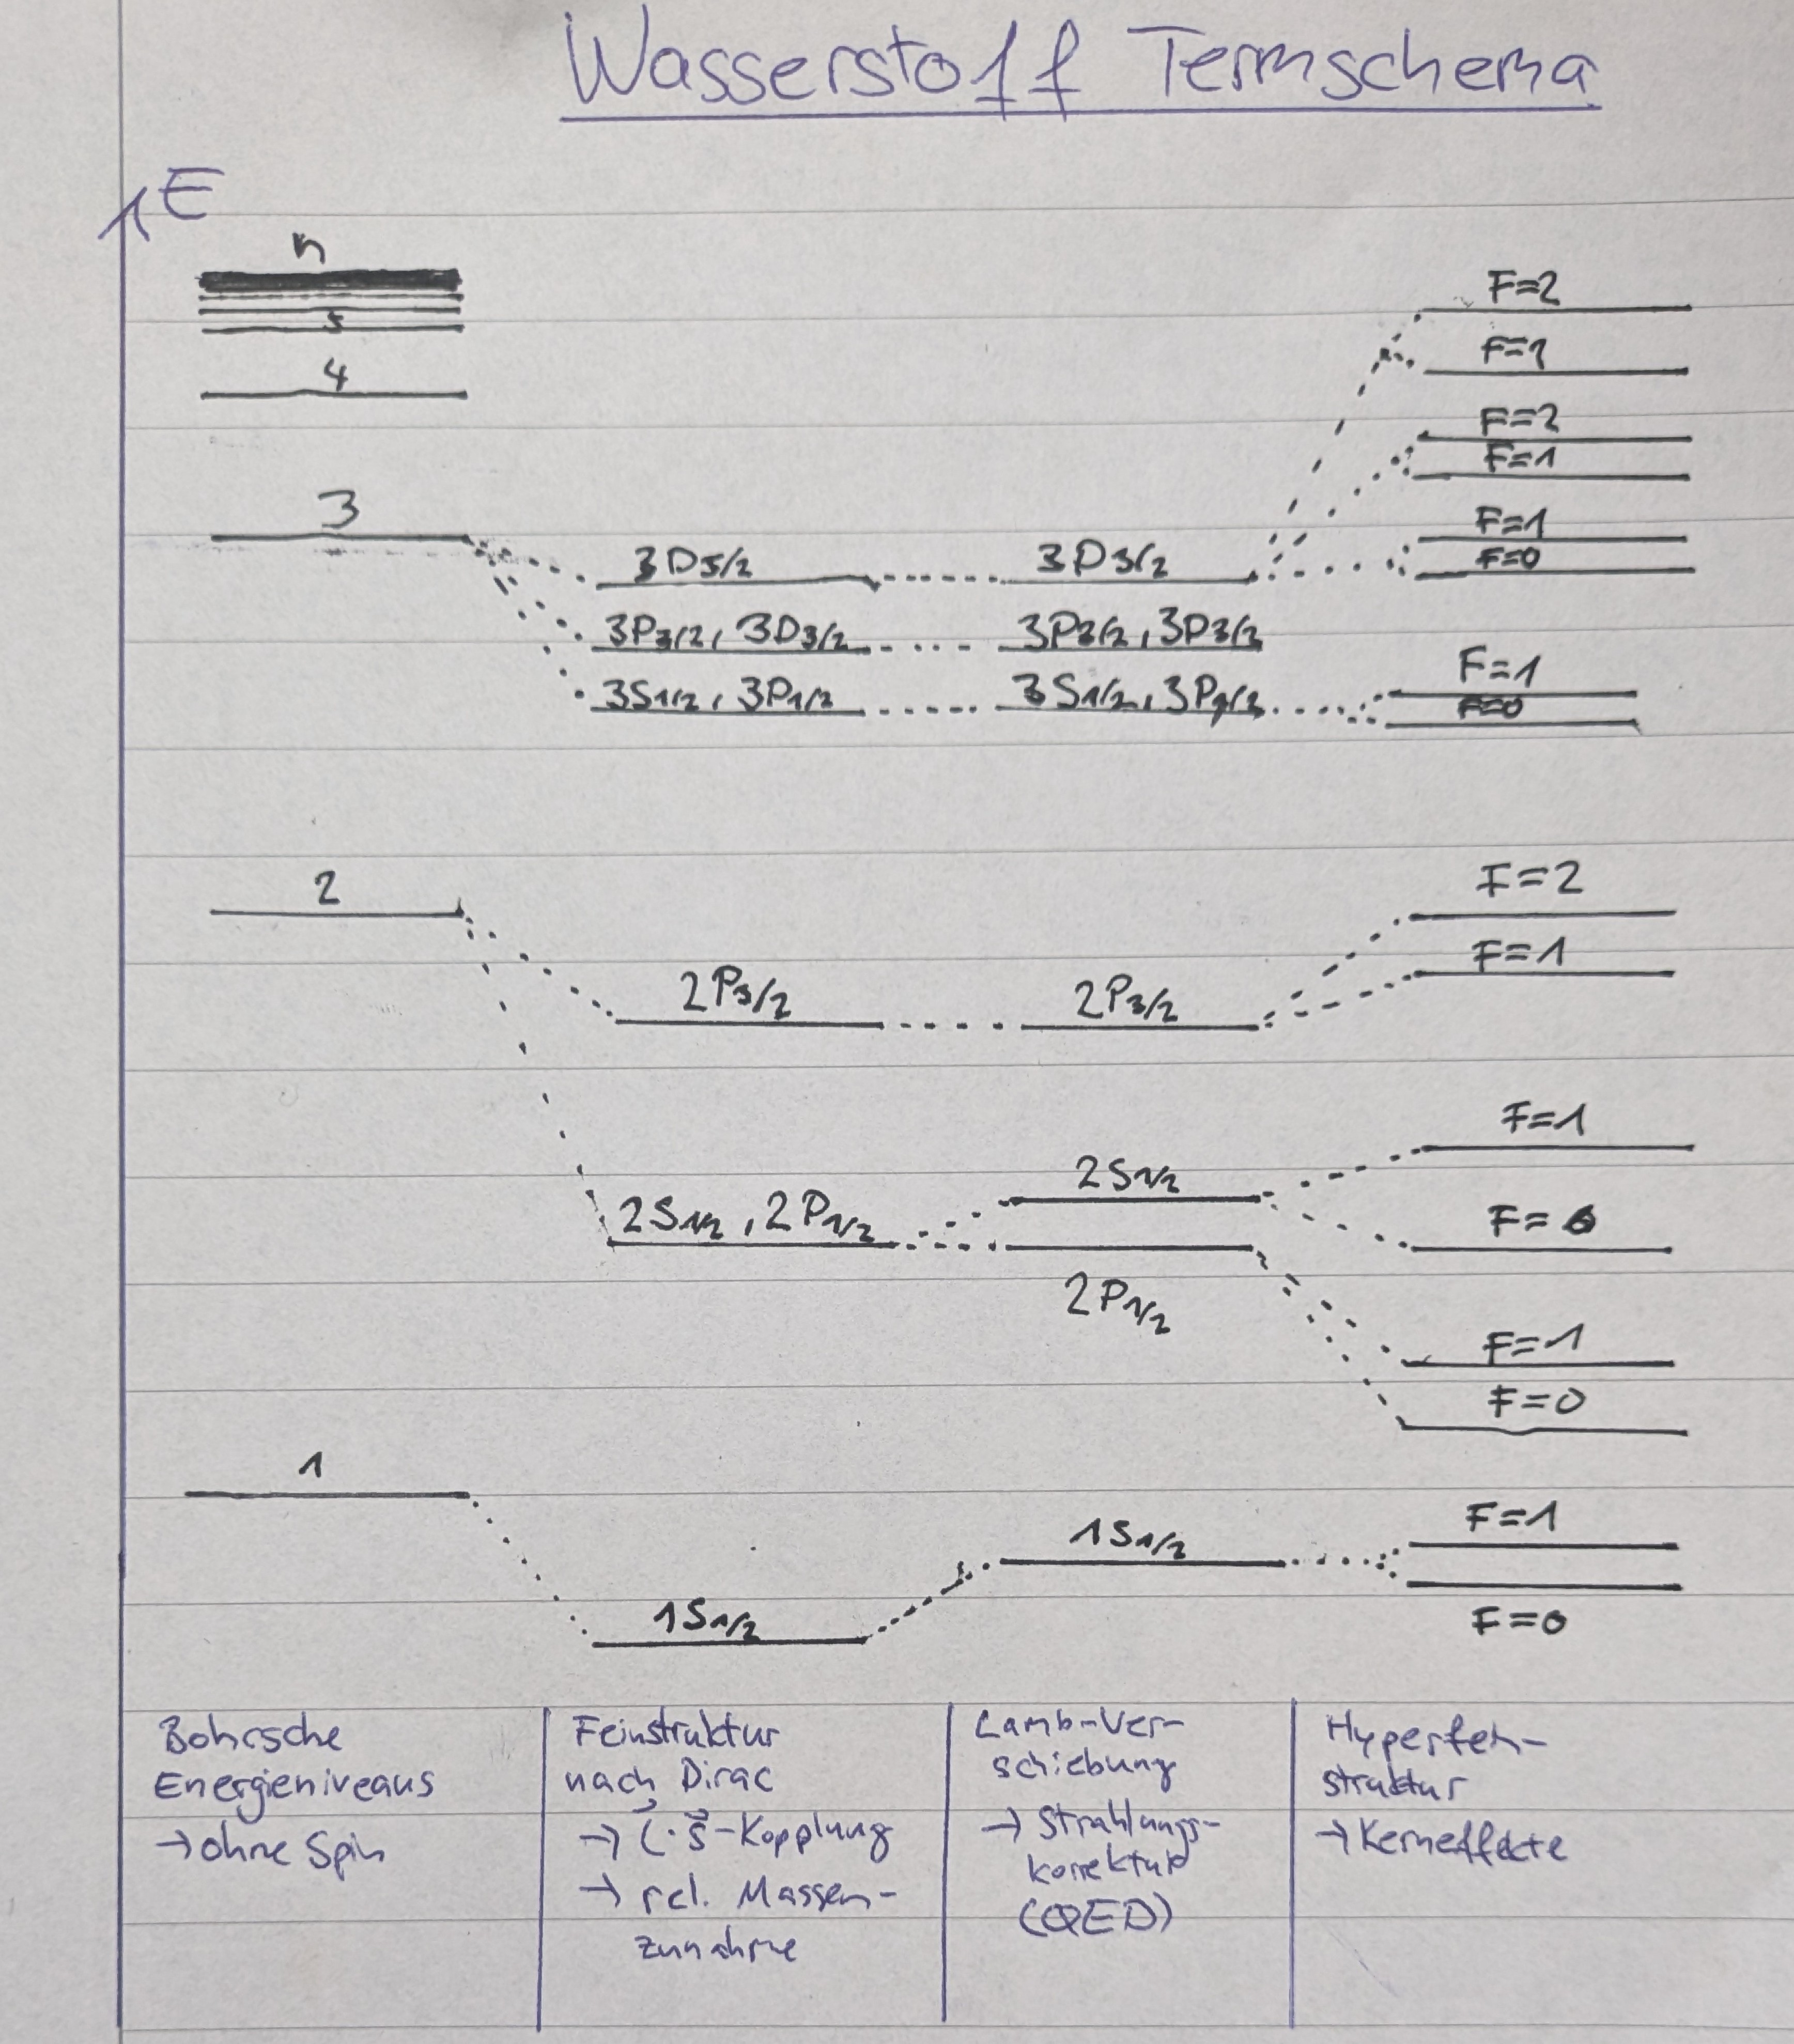 Wasserstoff Termschema
E
n
5
4
3
3D5/2
3D3/2
3P3/2, 3D3/2
3P3/2, 3P3/2
3S1/2, 3P1/2
3S1/2, 3P1/2
F=2
F=1
F=2
F=1
F=1
F=0
F=1
F=0
2
2P3/2
2P3/2
F=2
F=1
2S1/2, 2P1/2
2S1/2
2P1/2
F=1
F=0
F=1
F=0
1
1S1/2
1S1/2
F=1
F=0
Bohrsche
Energieniveaus
→ ohne Spin
Feinstruktur
nach Dirac
→ L·S-Kopplung
→ rel. Massen-
zunahme
Lamb-Ver-
schiebung
→ Strahlungs-
korrektur
(QED)
Hyperfein-
struktur
→ Kerneffekte